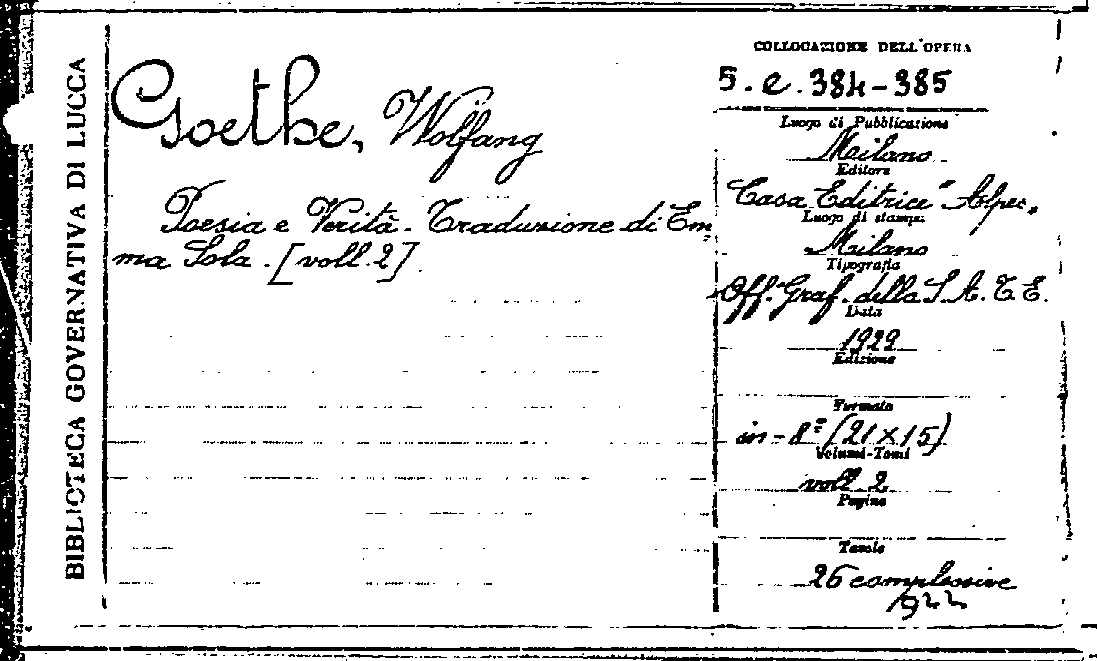 BIBLIOTECA GOVERNATIVA DI LUCCA
Goethe, Wolfang
Poesia e Verità - Traduzione di Em
ma Sola. [voll. 2]
COLLOCAZIONE DELL'OPERA
5. e. 384-385
Luogo di Pubblicazione
Milano
Editore
Casa Editrice "Alpes"
Luogo di stampa
Milano
Tipografia
Off. Graf. della S. A. T. E.
Data
1929
Edizione
Formato
in-8° (21 x 15)
Volumi-Tomi
voll 2
Pagine
Tavole
26 complessive